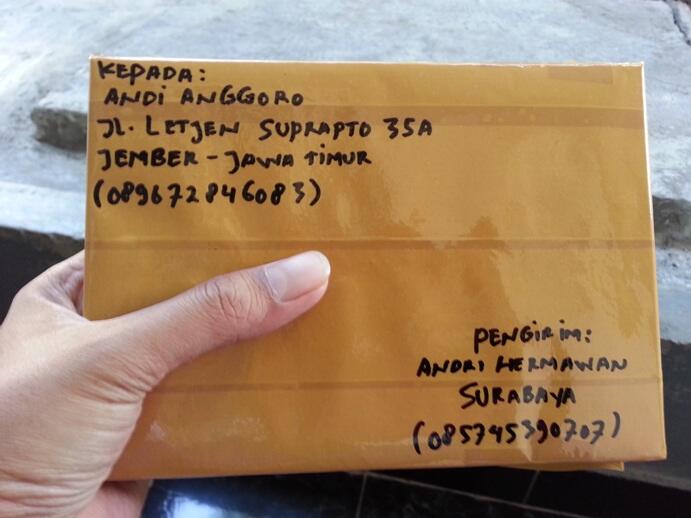 KEPADA:
ANDI ANGGORO
JL. LETJEN SUPRAPTO 35A
JEMBER - JAWA TIMUR
(089672846083)
PENGIRIM:
ANDRI HERMAWAN
SURABAYA
(085745390707)